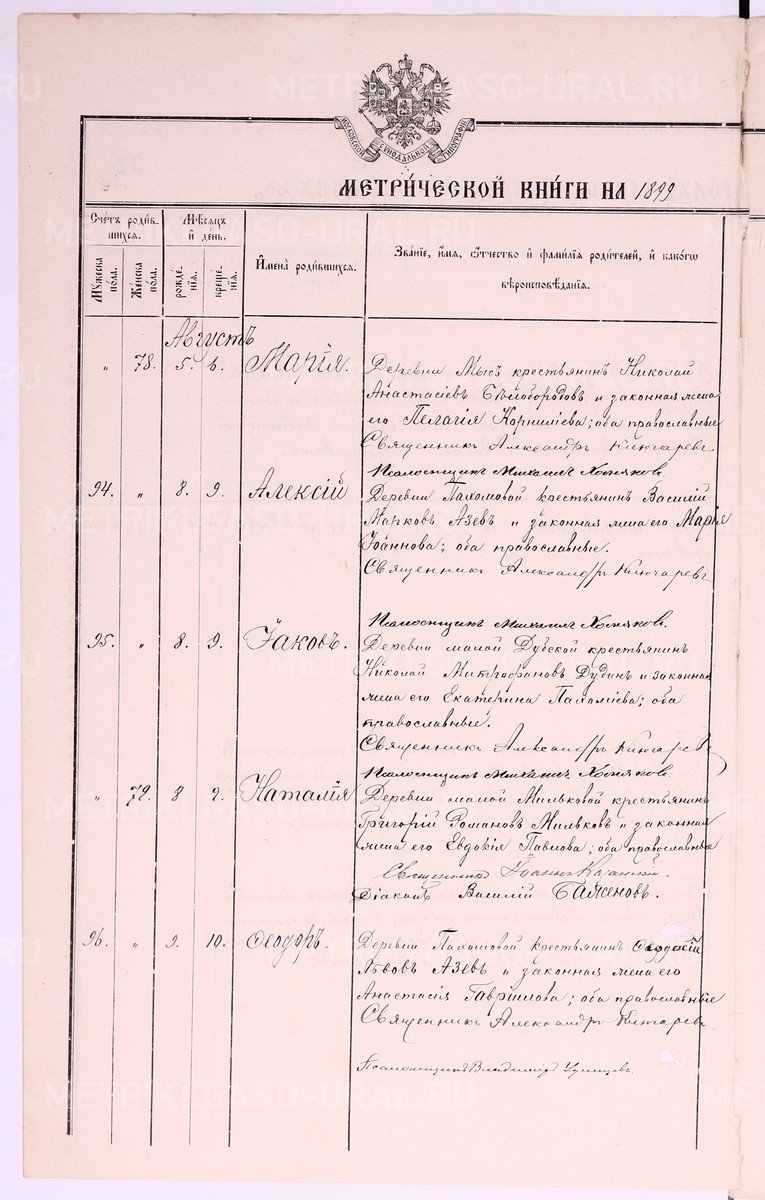 МОСКОВСКОЙ СУНОДАЛЬНОЙ ТИПОГРАФІИ
МЕТРИ́ЧЕСКОЙ КНИ́ГИ НА 1899
Сче́тъ роди́вшихся.
Мѣ́сяцъ и҆ де́нь.
И҆мена̀ роди́вшихся.
Зва́нїе, и҆́мя, ѻ҆́тчество и҆ фами́лїя роди́телей, и҆ како́гѡ вѣроисповѣ́данїя.
Му́жеска по́ла.
Же́нска по́ла.
рожде́нїя.
креще́нїя.
Августъ
" 78. 5. 6. Марія. Деревни Мысъ крестьянинъ Николай
Анастасіевъ Бѣлобородовъ и законная жена
его Пелагія Корниліева; оба православные
Священникъ Александръ Ключаревъ
Псаломщикъ Михаилъ Хомяковъ.
94. " 8. 9. Алексій Деревни Пахомовой крестьянинъ Василій
Марковъ Азевъ и законная жена его Марія
Іоаннова; оба православные.
Священникъ Александръ Ключаревъ
Псаломщикъ Михаилъ Хомяковъ.
95. " 8. 9. Іаковъ. Деревни малой Дубской крестьянинъ
Николай Митрофановъ Дудинъ и законная
жена его Екатерина Пахоміева; оба
православные.
Священникъ Александръ Ключаревъ
Псаломщикъ Михаилъ Хомяковъ
" 79. 8 9. Наталія Деревни малой Мильковой крестьянинъ
Григорій Романовъ Мильковъ и законная
жена его Евдокія Павлова; оба православные
Священникъ Іоаннъ Казанскій.
Діаконъ Василій Баженовъ.
96. " 9. 10. Ѳеодоръ. Деревни Пахомовой крестьянинъ Ѳеодосій
Львовъ Азевъ и законная жена его
Анастасія Гавріилова; оба православные
Священникъ Александръ Ключаревъ
Псаломщикъ Владимиръ
METRIKI.GASO-URAL.RU